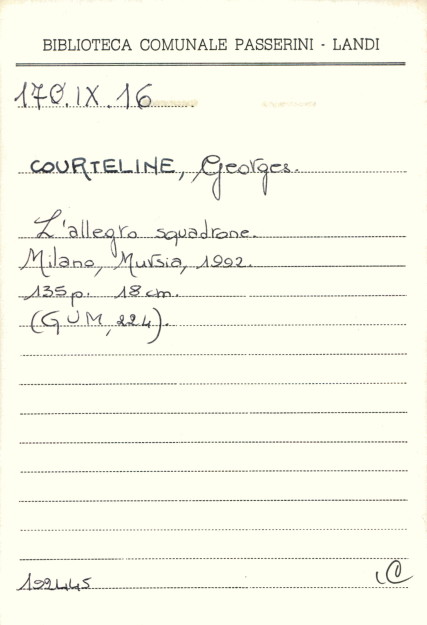 BIBLIOTECA COMUNALE PASSERINI - LANDI
170.IX.16
COURTELINE, Georges.
L'allegro squadrone.
Milano, Mursia, 1992.
135p. 18cm.
(GUM, 224).
192445